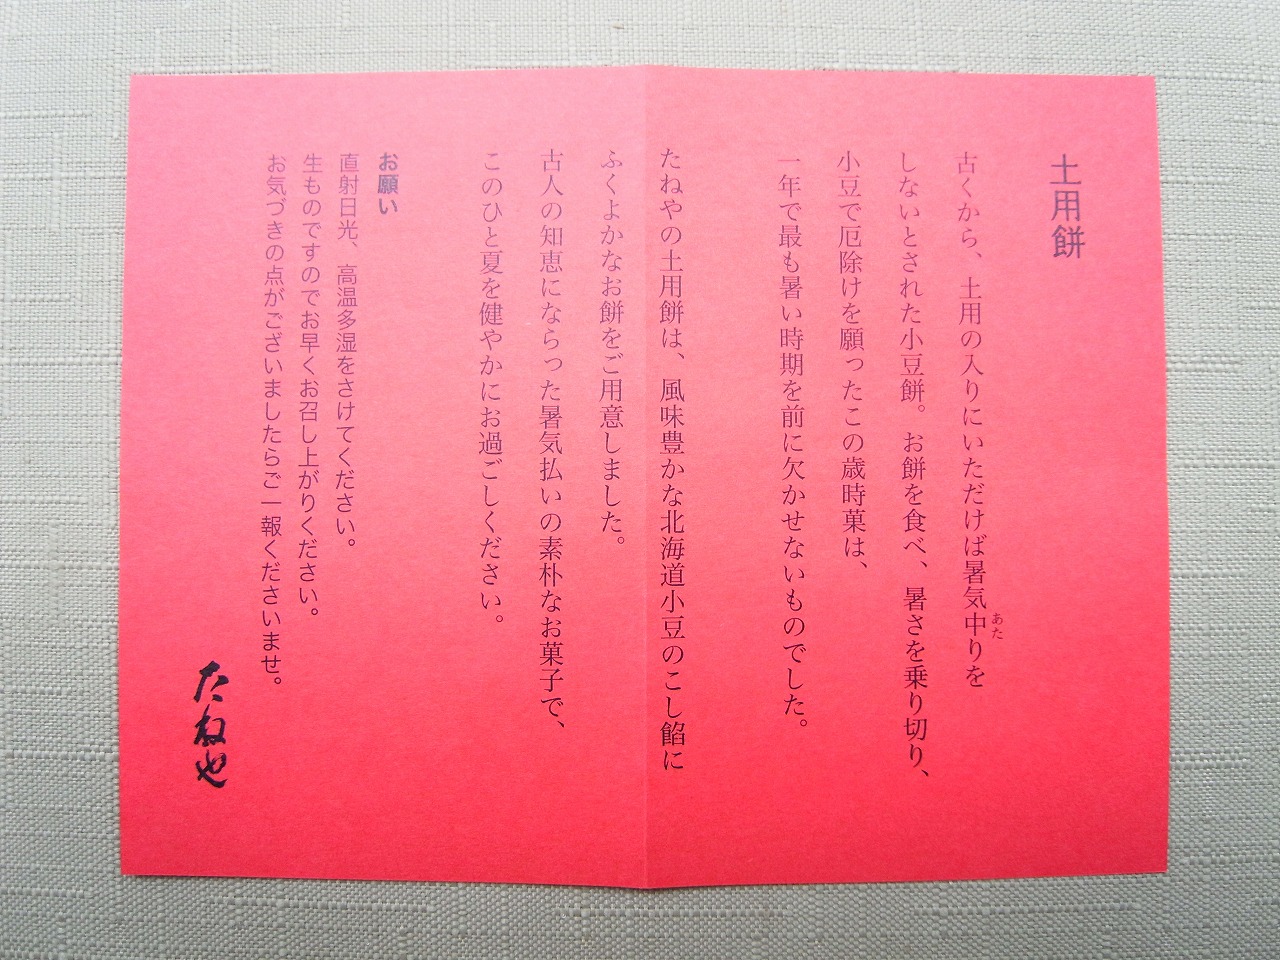 土用餅
古くから、土用の入りにいただけば暑気中りを
あた
しないとされた小豆餅。お餅を食べ、暑さを乗り切り、
小豆で厄除けを願ったこの歳時菓は、
一年で最も暑い時期を前に欠かせないものでした。
たねやの土用餅は、風味豊かな北海道小豆のこし餡に
ふくよかなお餅をご用意しました。
古人の知恵にならった暑気払いの素朴なお菓子で、
このひと夏を健やかにお過ごしください。
お願い
直射日光、高温多湿をさけてください。
生ものですのでお早くお召し上がりください。
お気づきの点がございましたらご一報くださいませ。
たねや